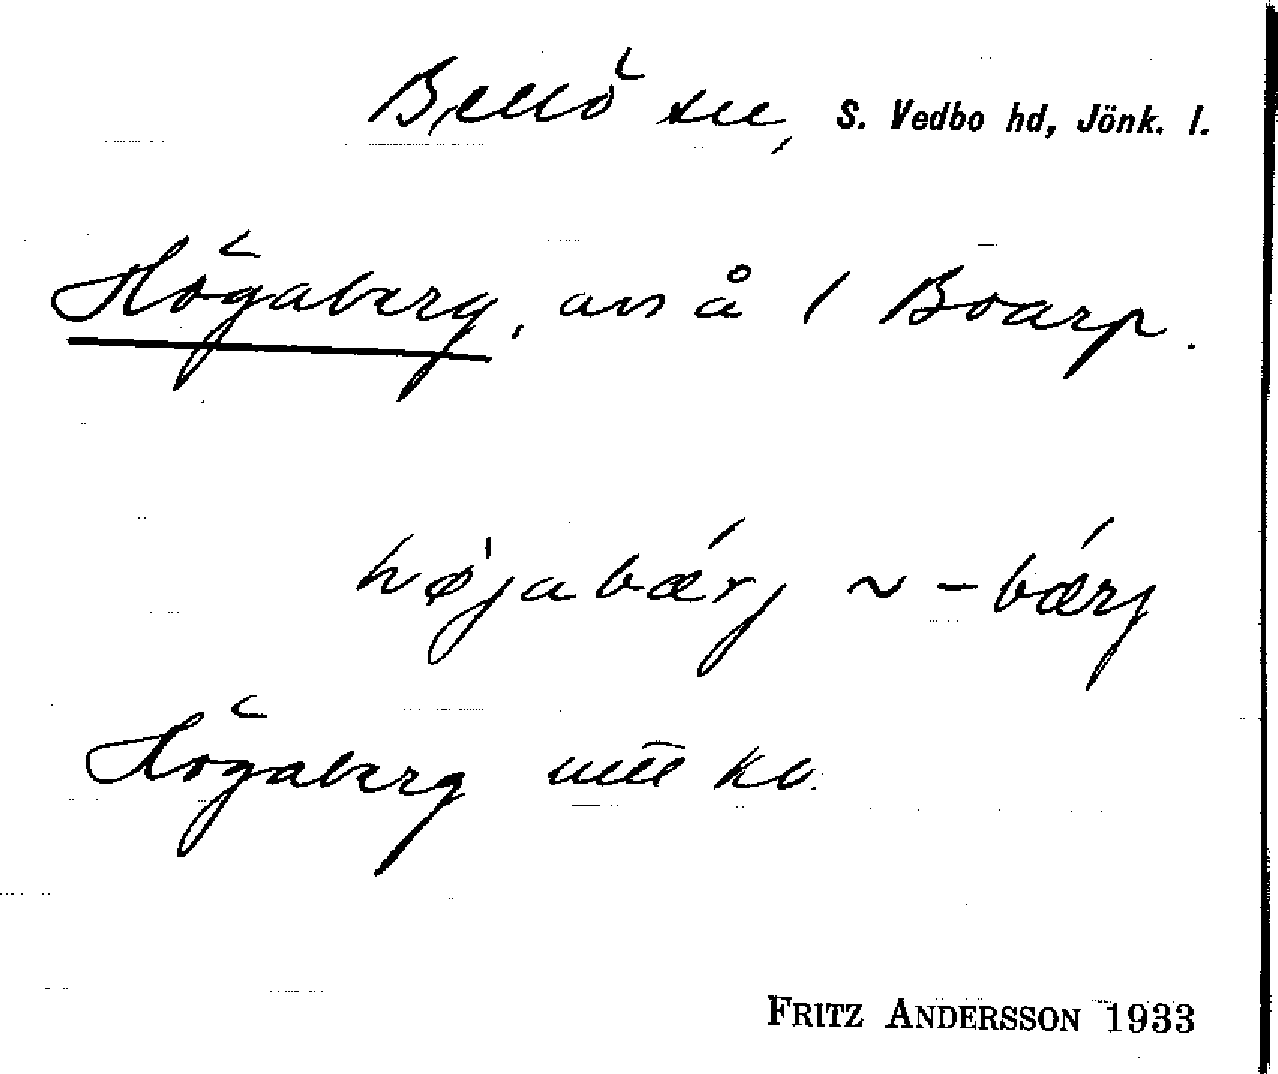 Bellö sn, S. Vedbo hd, Jönk. l.
Högaberg, avs å 1 Boarp.
højabærj ~ -bærj
Högaberg utt kv.
FRITZ ANDERSSON 1933